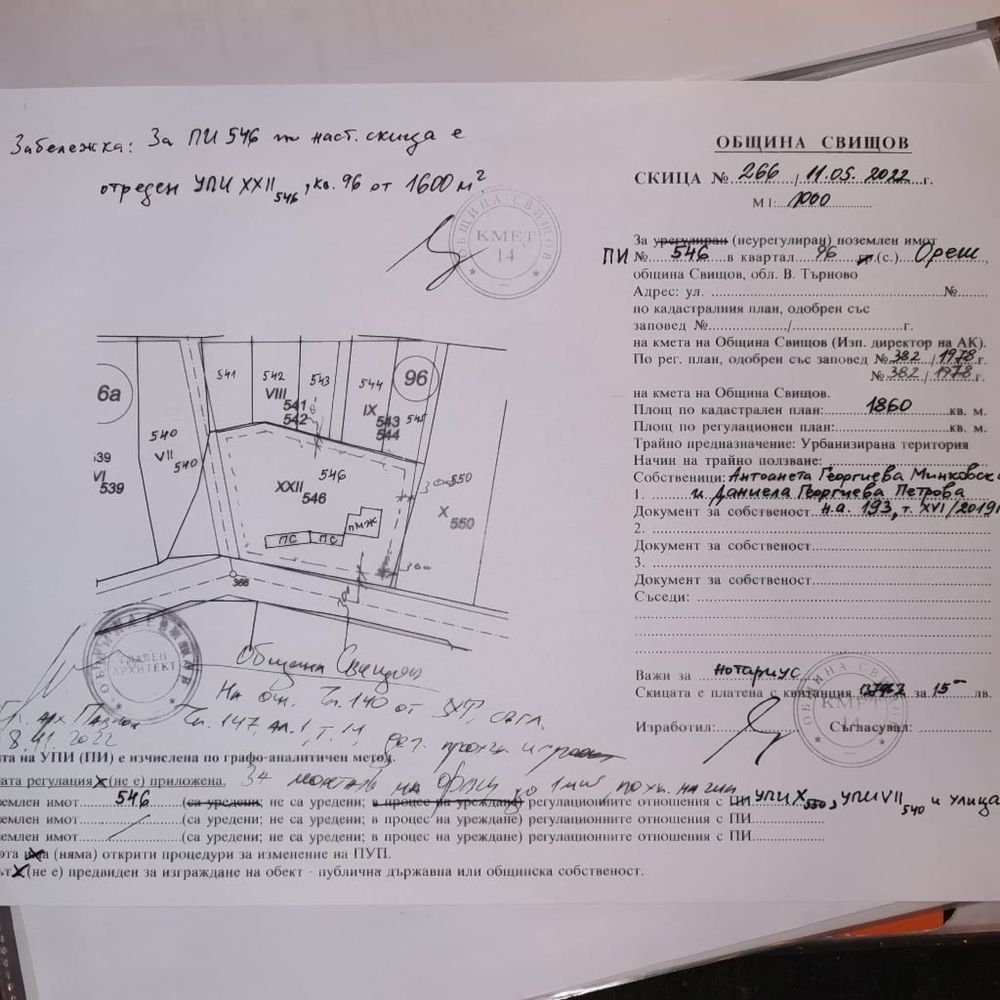 Забележка: За ПИ 546 от наст. скица е
отреден УПИ XXII 546, кв. 96 от 1600 м².
ОБЩИНА-СВИЩОВ
КМЕТ
14
ОБЩИНА СВИЩОВ
СКИЦА № 266 / 11.05. 2022 г.
М 1: 1000
За урегулиран (неурегулиран) поземлен имот
ПИ № 546 в квартал 96 гр.(с.) Ореш,
община Свищов, обл. В. Търново
Адрес: ул. №
по кадастралния план, одобрен със
заповед № / г.
на кмета на Община Свищов (Изп. директор на АК).
По рег. план, одобрен със заповед № 382 / 1978 г.
№ 382 / 1978 г.
на кмета на Община Свищов.
Площ по кадастрален план: 1860 кв. м.
Площ по регулационен план: кв. м.
Трайно предназначение: Урбанизирана територия
Начин на трайно ползване:
Собственици: Антоанета Георгиева Минковска
1. и Даниела Георгиева Петрова
Документ за собственост н.а. 193, т. XVI/2019г
2.
Документ за собственост
3.
Документ за собственост
Съседи:
Важи за нотариус
Скицата е платена с квитанция за 15 лв.
Изработил: Съгласувал:
ОБЩИНА-СВИЩОВ
КМЕТ
14
6а
541
542
543
544
545
96
VIII
541
542
IX
543
544
540
VII
540
539
VI
539
546
XXII
546
550
X
550
пМЖ
ПС
ПС
366
ГЛАВЕН
АРХИТЕКТ
Община Свищов
На осн. Чл. 140 от ЗУТ, съгл.
Чл. 147, ал. 1, т. 14
11. 2022
та на УПИ (ПИ) е изчислена по графо-аналитичен метод.
ата регулация (не е) приложена.
емлен имот 546 (са уредени; не са уредени; в процес на уреждане) регулационните отношения с ПИ УПИ X 550, УПИ VII 540 и улица
емлен имот (са уредени; не са уредени; в процес на уреждане) регулационните отношения с ПИ
емлен имот (са уредени; не са уредени; в процес на уреждане) регулационните отношения с ПИ
ота има (няма) открити процедури за изменение на ПУП.
ът (не е) предвиден за изграждане на обект - публична държавна или общинска собственост.